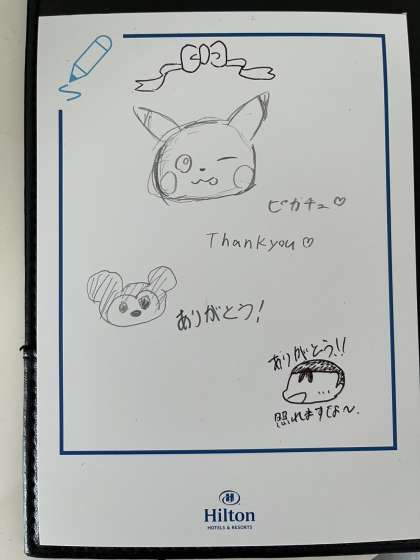 ピカチュ♡
Thankyou♡
ありがとう!
ありがとう!!
照れますなぁ〜.
Hilton
HOTELS & RESORTS